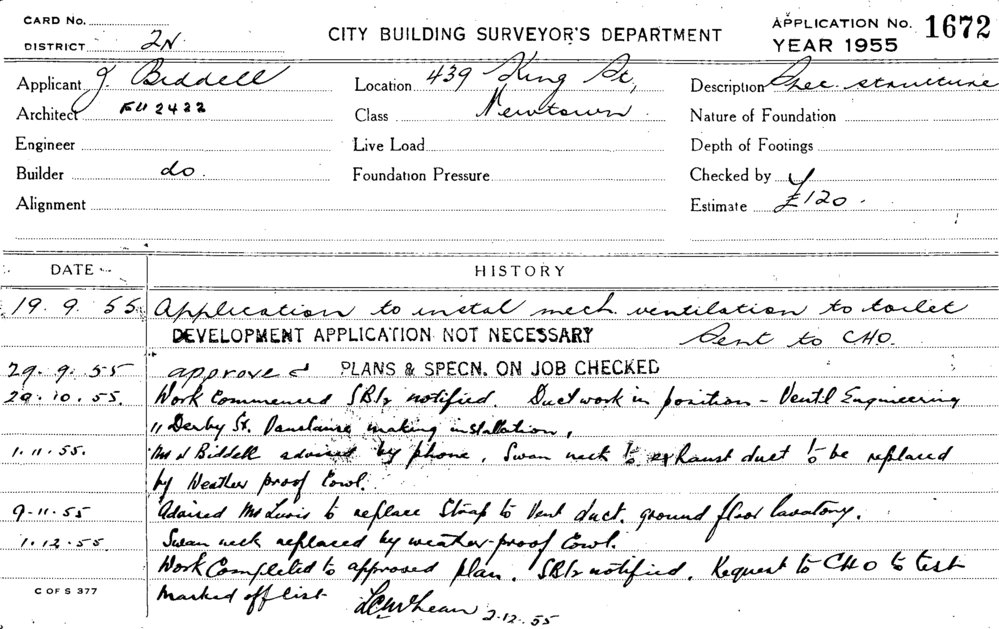 CARD No.
DISTRICT 2N
CITY BUILDING SURVEYOR'S DEPARTMENT
APPLICATION No. 1672
YEAR 1955
Applicant J. Biddell
Location 439 King St,
Description Spec. structure
Architect FU 2422
Class Newtown
Nature of Foundation
Engineer
Live Load
Depth of Footings
Builder do.
Foundation Pressure
Checked by
Alignment
Estimate £120.
DATE
HISTORY
19. 9. 55 Application to instal mech. ventilation to toilet
DEVELOPMENT APPLICATION NOT NECESSARY Sent to CHO.
29. 9. 55 approved PLANS & SPECN. ON JOB CHECKED
29. 10. 55. Work Commenced notified. Ductwork in position - Ventil Engineering
11 Derby St. making installation.
1. 11. 55. Biddell advised by phone. Swan neck to exhaust duct to be replaced
by Weather proof Cowl.
9-11-55 Advised to replace Strap to Vent duct. ground floor lavatory.
1. 12. 55 Swan neck replaced by weather-proof Cowl.
Work Completed to approved plan. notified. Request to CHO to test
Marked off list 2.12.55
C OF S 377